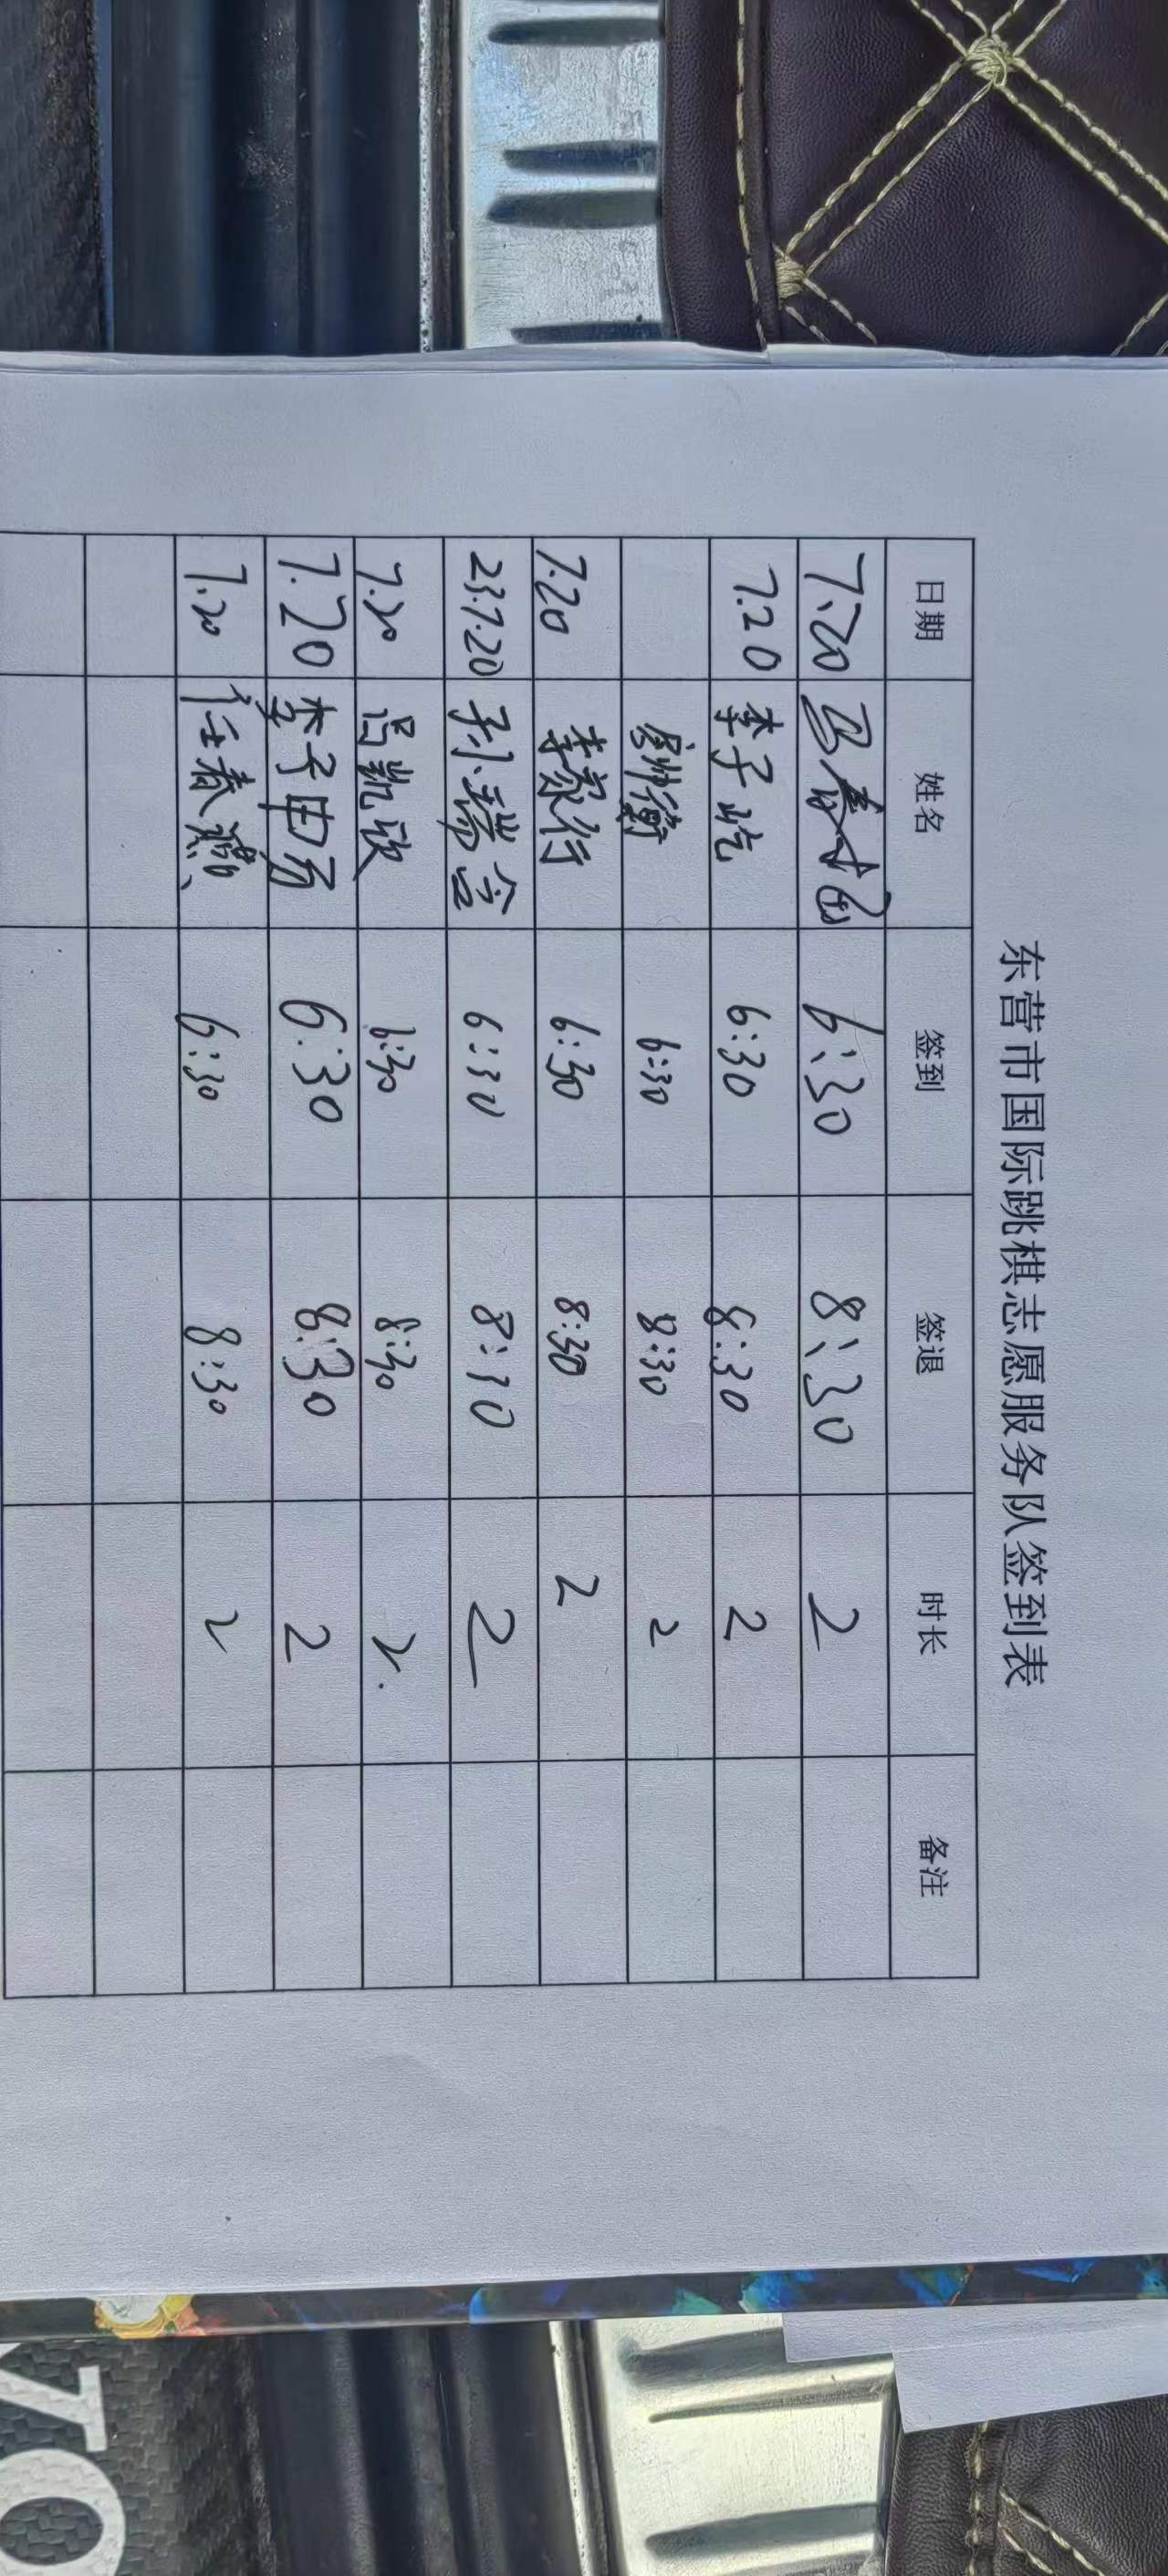 东营市国际跳棋志愿服务队签到表
日期 姓名 签到 签退 时长 备注
7.20 6:30 8:30 2
7.20 李子屹 6:30 8:30 2
6:30 8:30 2
7.20 李家行 6:30 8:30 2
23.7.20 孙瑞含 6:30 8:30 2
7.20 吕凯欣 6:30 8:30 2.
7.20 李子申 6:30 8:30 2
7.20 任春 6:30 8:30 2